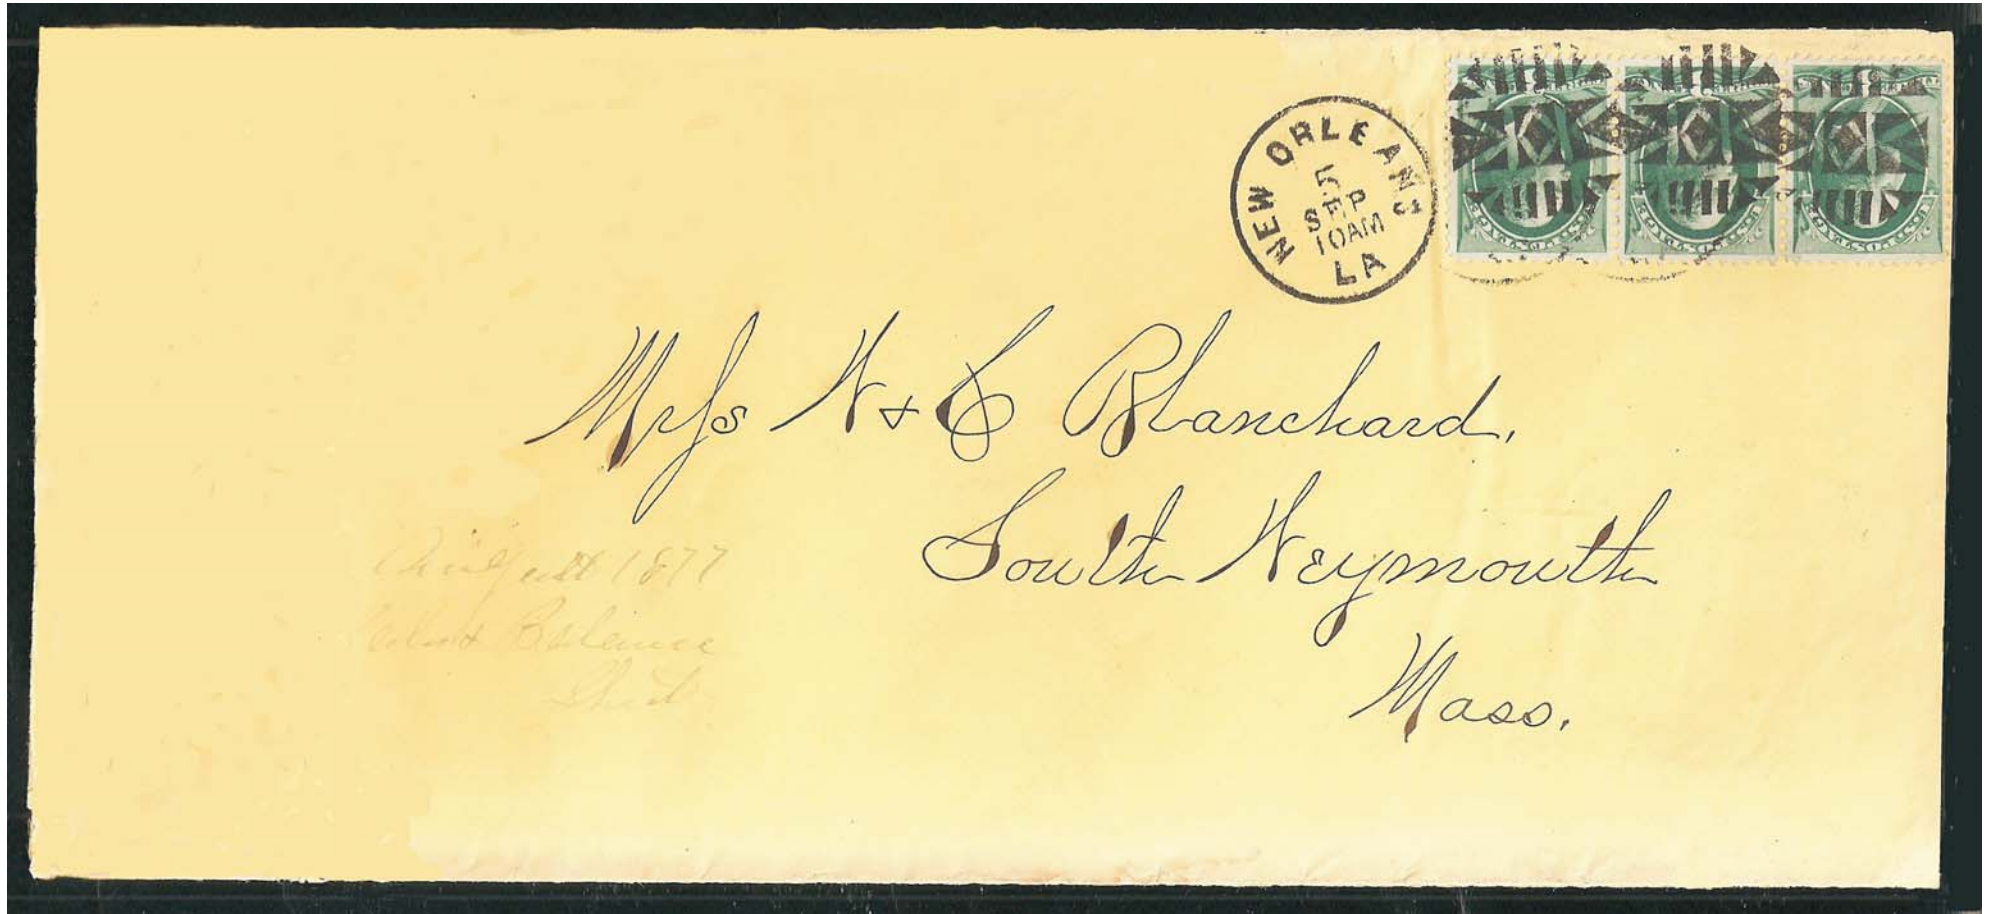 NEW ORLEANS
5
SEP
10AM
LA
U.S. POSTAGE
Mess N & C Blanchard,
South Weymouth
Mass.
August 1877
Balance